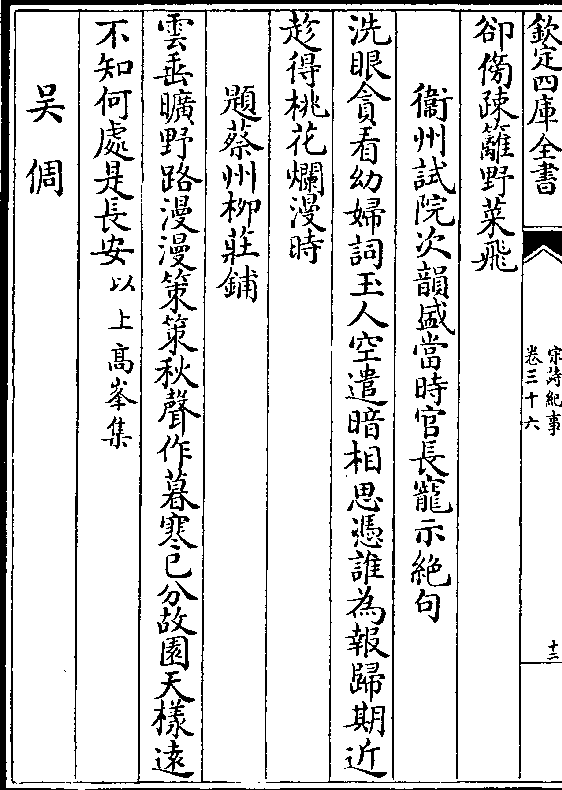 欽定四庫全書
宋詩紀事
卷三十六
十二
卻傍疎籬野菜飛
衢州試院次韻盛當時官長寵示絶句
洗眼貪看幼婦詞玉人空遣暗相思憑誰為報歸期近
趁得桃花爛漫時
題蔡州柳莊鋪
雲垂曠野路漫漫策策秋聲作暮寒已分故園天樣遠
不知何處是長安以上高峯集
吴倜